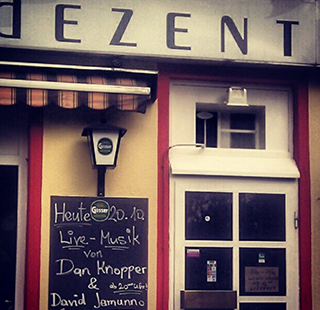 dEZENT
Gösser
Heute 20.10
Live-Musik
von
Dan Knopper
& ab 20 Uhr!
David Jamunno